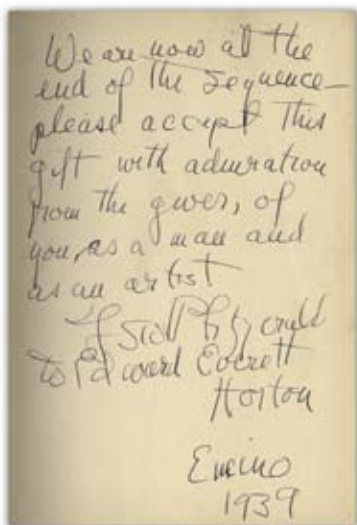 We are now at the
end of the sequence—
please accept this
gift with admiration
from the giver, of
you, as a man and
as an artist
F Scott Fitzgerald
to Edward Everett
Horton
Encino
1939